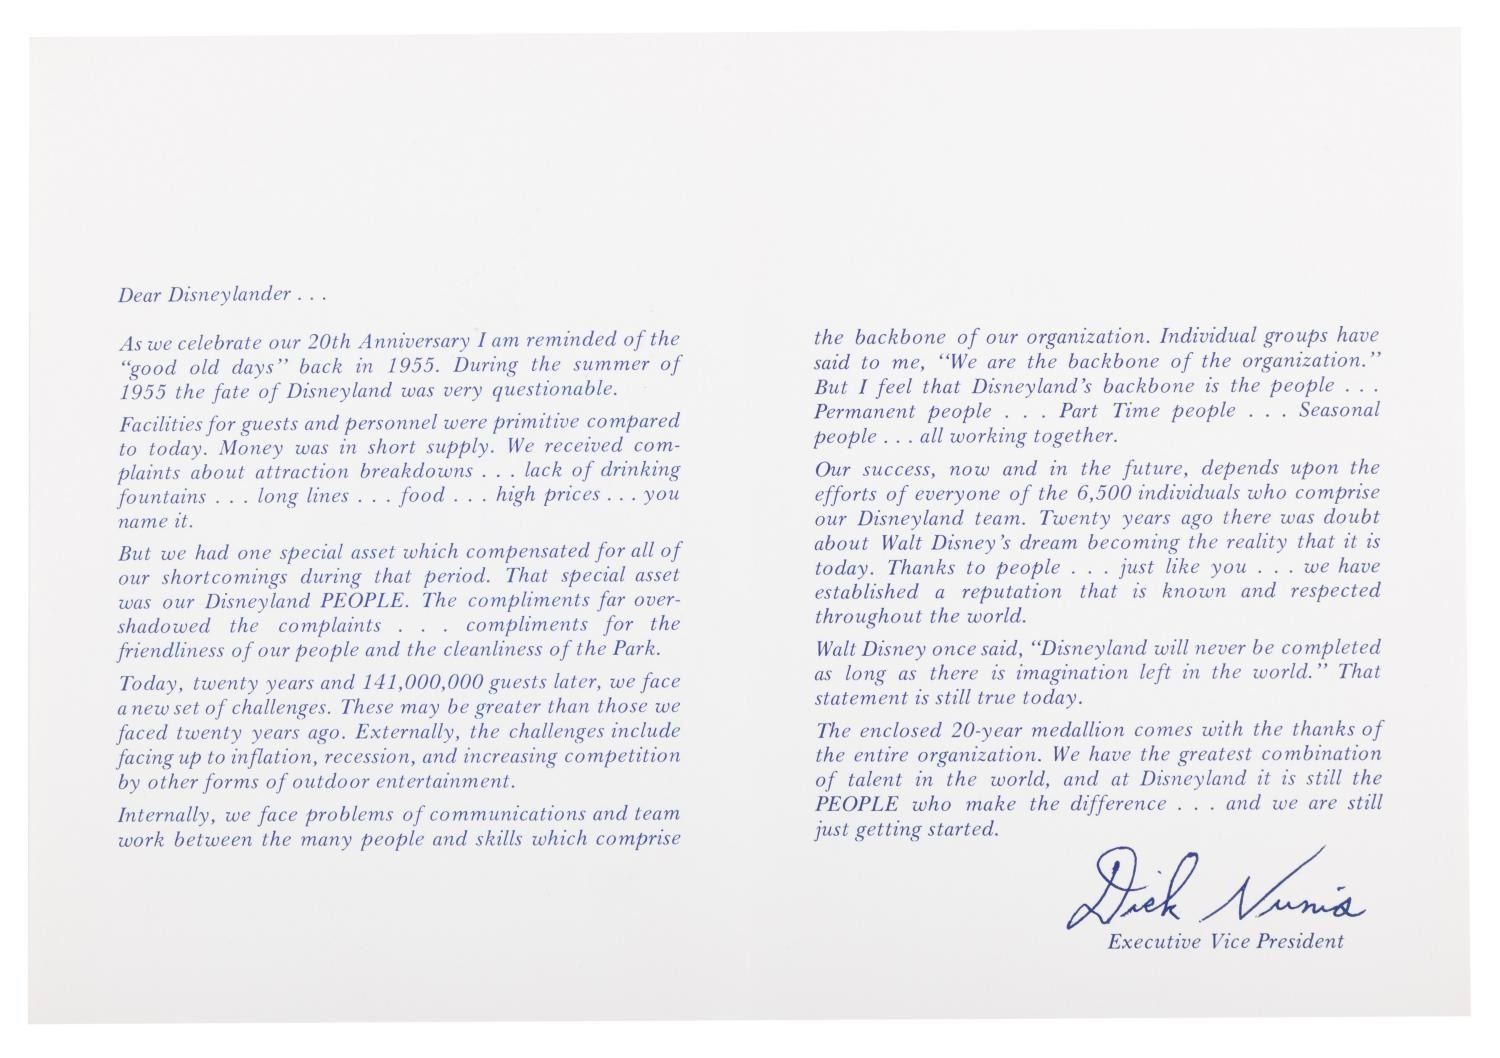 Dear Disneylander . . .
As we celebrate our 20th Anniversary I am reminded of the
“good old days” back in 1955. During the summer of
1955 the fate of Disneyland was very questionable.
Facilities for guests and personnel were primitive compared
to today. Money was in short supply. We received com-
plaints about attraction breakdowns . . . lack of drinking
fountains . . . long lines . . . food . . . high prices . . . you
name it.
But we had one special asset which compensated for all of
our shortcomings during that period. That special asset
was our Disneyland PEOPLE. The compliments far over-
shadowed the complaints . . . compliments for the
friendliness of our people and the cleanliness of the Park.
Today, twenty years and 141,000,000 guests later, we face
a new set of challenges. These may be greater than those we
faced twenty years ago. Externally, the challenges include
facing up to inflation, recession, and increasing competition
by other forms of outdoor entertainment.
Internally, we face problems of communications and team
work between the many people and skills which comprise
the backbone of our organization. Individual groups have
said to me, “We are the backbone of the organization.”
But I feel that Disneyland’s backbone is the people . . .
Permanent people . . . Part Time people . . . Seasonal
people . . . all working together.
Our success, now and in the future, depends upon the
efforts of everyone of the 6,500 individuals who comprise
our Disneyland team. Twenty years ago there was doubt
about Walt Disney’s dream becoming the reality that it is
today. Thanks to people . . . just like you . . . we have
established a reputation that is known and respected
throughout the world.
Walt Disney once said, “Disneyland will never be completed
as long as there is imagination left in the world.” That
statement is still true today.
The enclosed 20-year medallion comes with the thanks of
the entire organization. We have the greatest combination
of talent in the world, and at Disneyland it is still the
PEOPLE who make the difference . . . and we are still
just getting started.
Dick Nunis
Executive Vice President